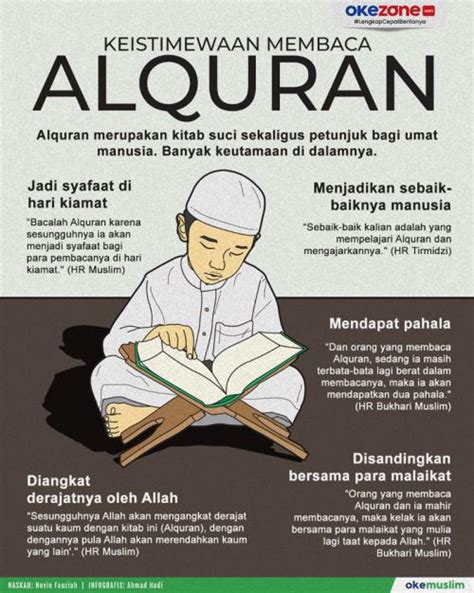 okezone.com
#LengkapCepatBeritanya
KEISTIMEWAAN MEMBACA
ALQURAN
Alquran merupakan kitab suci sekaligus petunjuk bagi umat
manusia. Banyak keutamaan di dalamnya.
Jadi syafaat di
hari kiamat
“Bacalah Alquran karena
sesungguhnya ia akan
menjadi syafaat bagi
para pembacanya di hari
kiamat." (HR Muslim)
Menjadikan sebaik-
baiknya manusia
“Sebaik-baik kalian adalah yang
mempelajari Alquran dan
mengajarkannya." (HR Tirmidzi)
Mendapat pahala
"Dan orang yang membaca
Alquran, sedang ia masih
terbata-bata lagi berat dalam
membacanya, maka ia akan
mendapatkan dua pahala."
(HR Bukhari Muslim)
Diangkat
derajatnya oleh Allah
“Sesungguhnya Allah akan mengangkat derajat
suatu kaum dengan kitab ini (Alquran), dengan
dengannya pula Allah akan merendahkan kaum
yang lain'." (HR Muslim)
Disandingkan
bersama para malaikat
"Orang yang membaca
Alquran dan ia mahir
membacanya, maka kelak ia akan
bersama para malaikat yang mulia
lagi taat kepada Allah." (HR
Bukhari Muslim)
NASKAH: Novie Fauziah | INFOGRAFIS: Ahmad Hadi
okemuslim